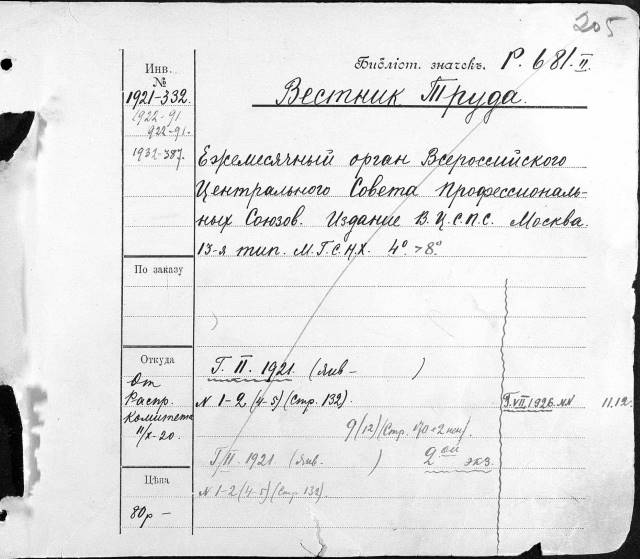 205
Библіот. значекъ. Р. 681.II.
Вестник Труда.
Инв.
№
1921-332.
1922-91
922-91.
1932-387.
Ежемесячный орган Всероссийского
Центрального Совета Профессиональ-
ных Союзов. Издание В.Ц.С.П.С. Москва.
13-я тип. М.Г.С.Н.Х. 4° > 8°
По заказу
Откуда
От
Распр.
Комитета
11/X-20.
Цѣна
80р —
Г. II. 1921. (Янв- )
N 1-2 (4-5) (Стр. 132).
9(12) (Стр. 170+2 нен).
Г. II. 1921 (Янв ) 2ой экз.
N 1-2 (4-5) (Стр. 132).
Г. VII. 1926. NN 11.12.